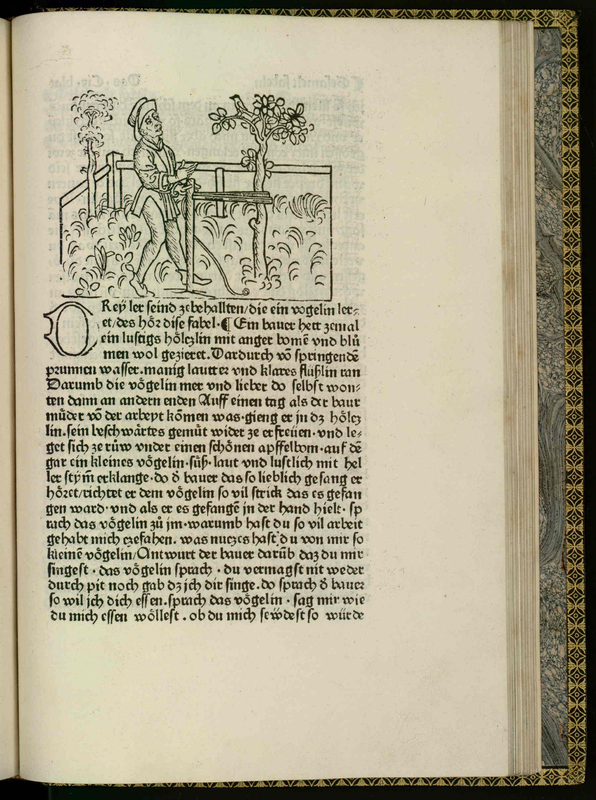 DRey ler seind ze behallten/die ein vogelin ler-
et/des hör dise fabel·¶ Ein bauer hett zemal
ein lustigs höltzlin mit anger bomē vnd blů
men wol gezieret. Dardurch vō springendē
prunnen wasser.manig lautter vnd klares flüßlin ran
Darumb die vögelin mer vnd lieber do selbst won-
ten dann an andern enden Auff einen tag als der baur
můder vō der arbeyt kōmen was·gieng er in dz höltz
lin.sein beschwärtes gemüt wider ze erfreüen·vnd le-
get sich ze růw vnder einen schönen apffelbom·auf dē
gar ein kleines vögelin·süß·laut vnd lustlich mit hel
ler stym̄ erklange·do d̄ bauer das so lieblich gesang er
höret/richtet er dem vögelin so vil strick das es gefan
gen ward·vnd als er es gefangē in der hand hielt·sp
rach das vögelin zů jm·warumb hast du so vil arbeit
gehabt mich ze fahen. was nutzes hast du von mir so
kleinē vögelin/Antwurt der bauer darūb daz du mir
singest·das vögelin sprach·du vermagst nit weder
durch pit noch gab dz ich dir singe.do sprach d̄ bauer
so wil ich dich essen.sprach das vögelin·sag mir wie
du mich essen wöllest.ob du mich sewdest so würde